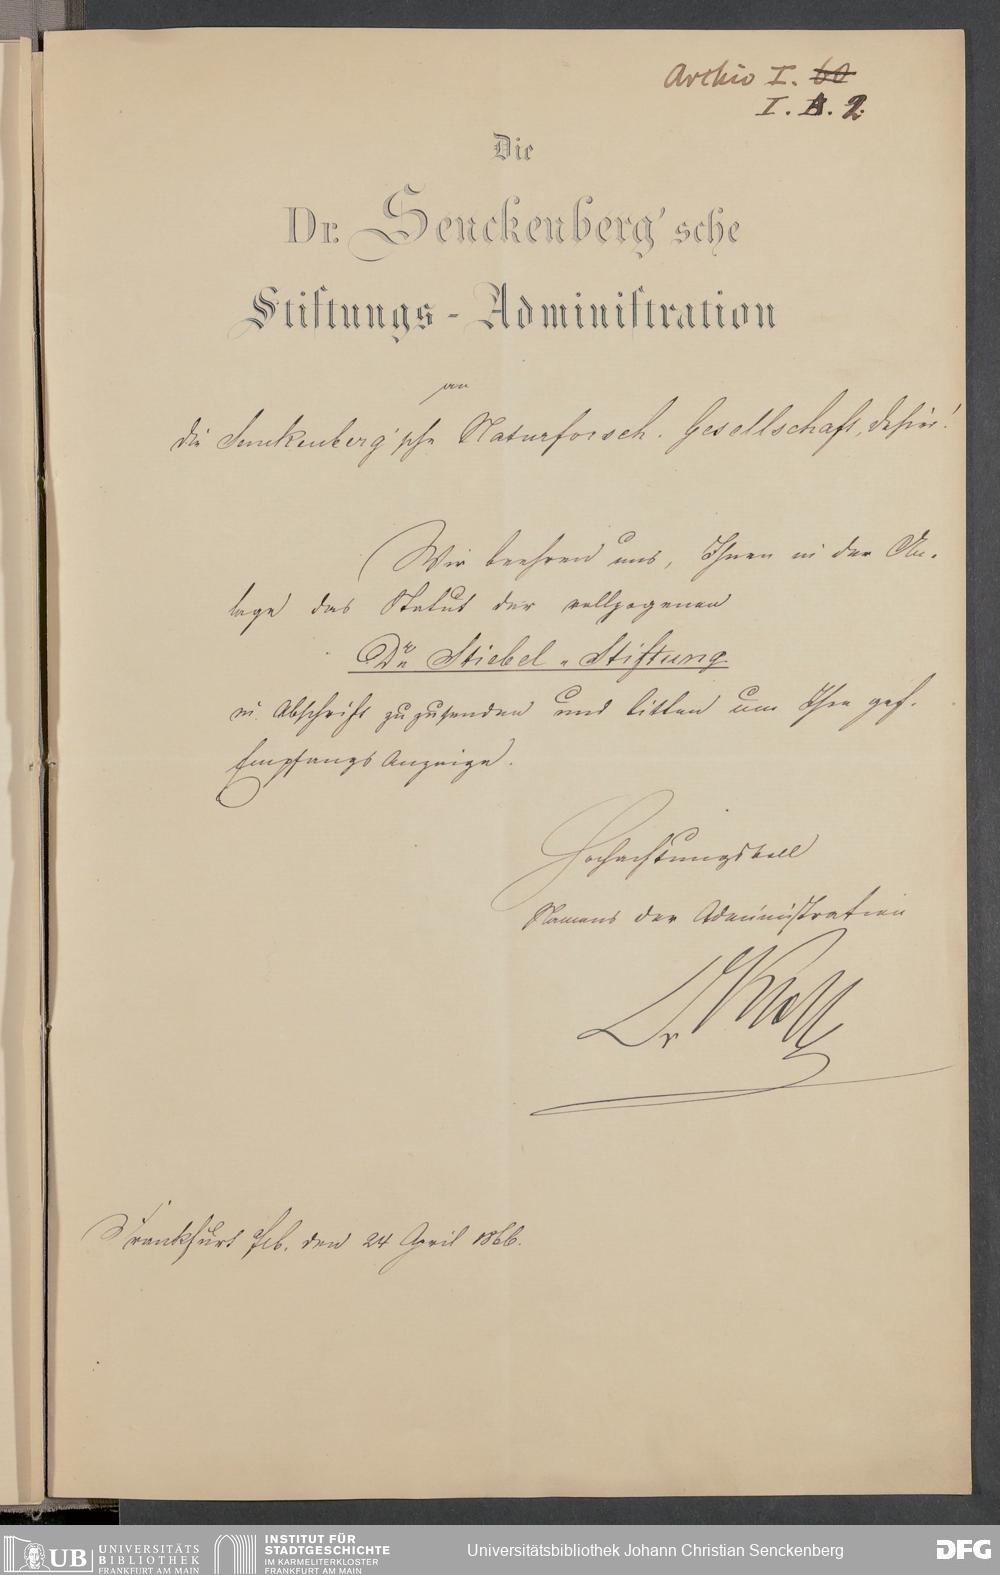 Archiv I. 60
I. A. 2.
Die
Dr. Senckenberg'sche
Stiftungs-Administration
an
die Senckenberg'sche Naturforsch. Gesellschaft, dahier!
Wir beehren uns, Ihnen in der An-
lage das Statut der vollzogenen
Dr. Stiebel-Stiftung
in Abschrift zuzusenden und bitten um Ihre gef.
Empfangs Anzeige.
Hochachtungsvoll
Namens der Administration
Dr
Frankfurt den 24 April 1866.
UB UNIVERSITÄTS
BIBLIOTHEK
FRANKFURT AM MAIN
INSTITUT FÜR
STADTGESCHICHTE
IM KARMELITERKLOSTER
FRANKFURT AM MAIN
Universitätsbibliothek Johann Christian Senckenberg
DFG